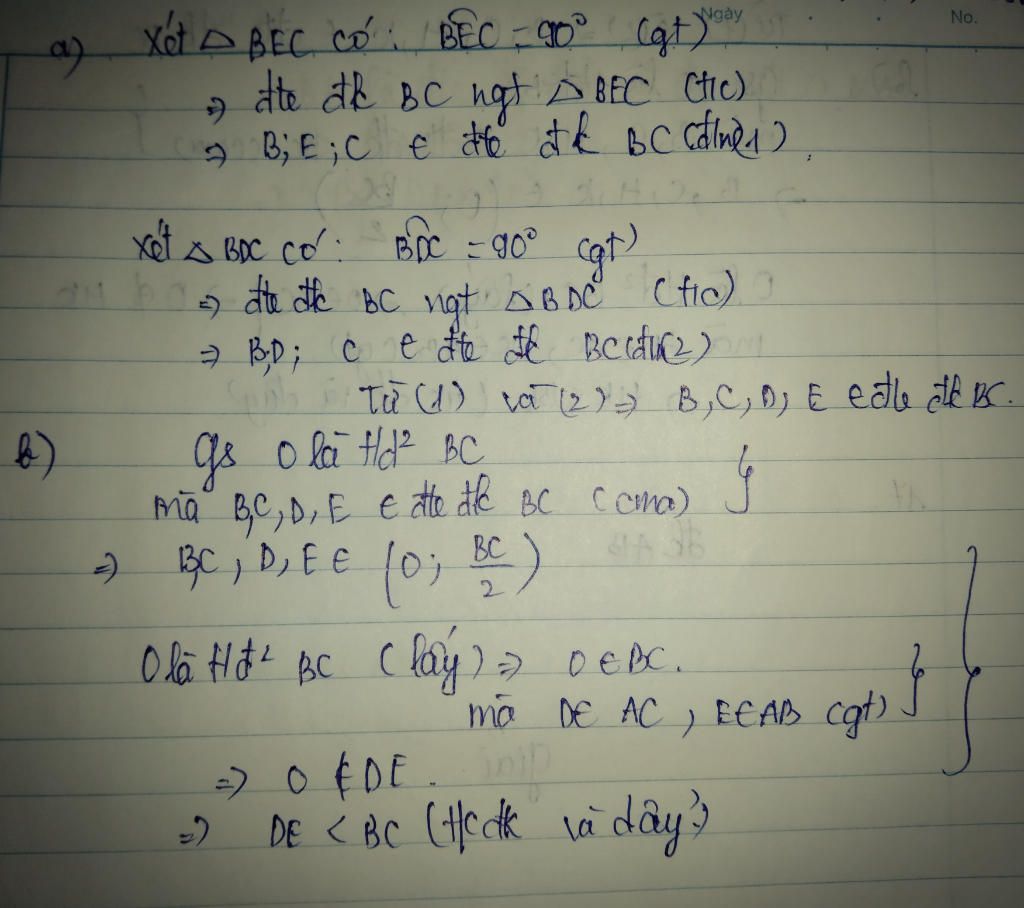 Ngày No.
a) Xét △ BEC có: BEC = 90° (gt)
⇒ đtr đk BC ngt △ BEC (t/c)
⇒ B; E; C ∈ đtr đk BC (đn)(1)
Xét △ BDC có: BDC = 90° (gt)
⇒ đtr đk BC ngt △ BDC (t/c)
⇒ B, D; C ∈ đtr đk BC (đn)(2)
Từ (1) và (2) ⇒ B, C, D, E ∈ đtr đk BC.
b) Gs O là tđ² BC
mà B, C, D, E ∈ đtr đk BC (cma) }
⇒ B, C, D, E ∈ (O; BC/2)
O là tđ² BC (lấy) ⇒ O ∈ BC.
mà D ∈ AC, E ∈ AB (gt) }
⇒ O ∉ DE.
⇒ DE < BC (t/c đk và dây)